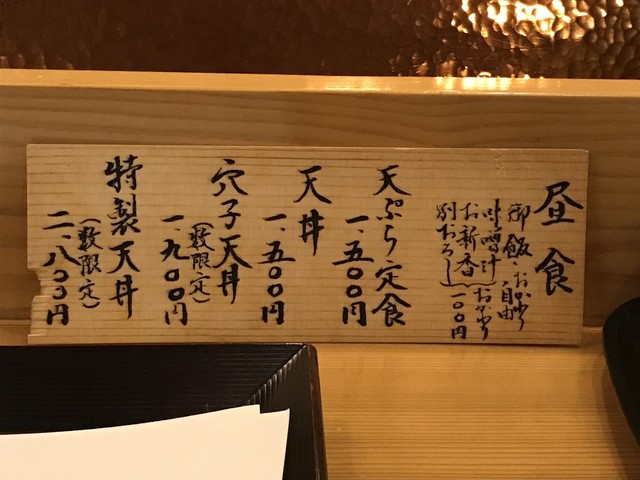 昼食
御飯・おかわり自由
味噌汁
お新香
別おろし
おかわり一〇〇円
天ぷら定食
一、五〇〇円
天丼
一、五〇〇円
穴子天丼
（数限定）
一、九〇〇円
特製天丼
（数限定）
二、八〇〇円